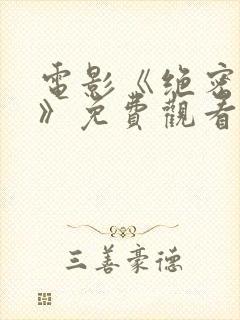 電影《绝密
》免費觀看
三善豪德